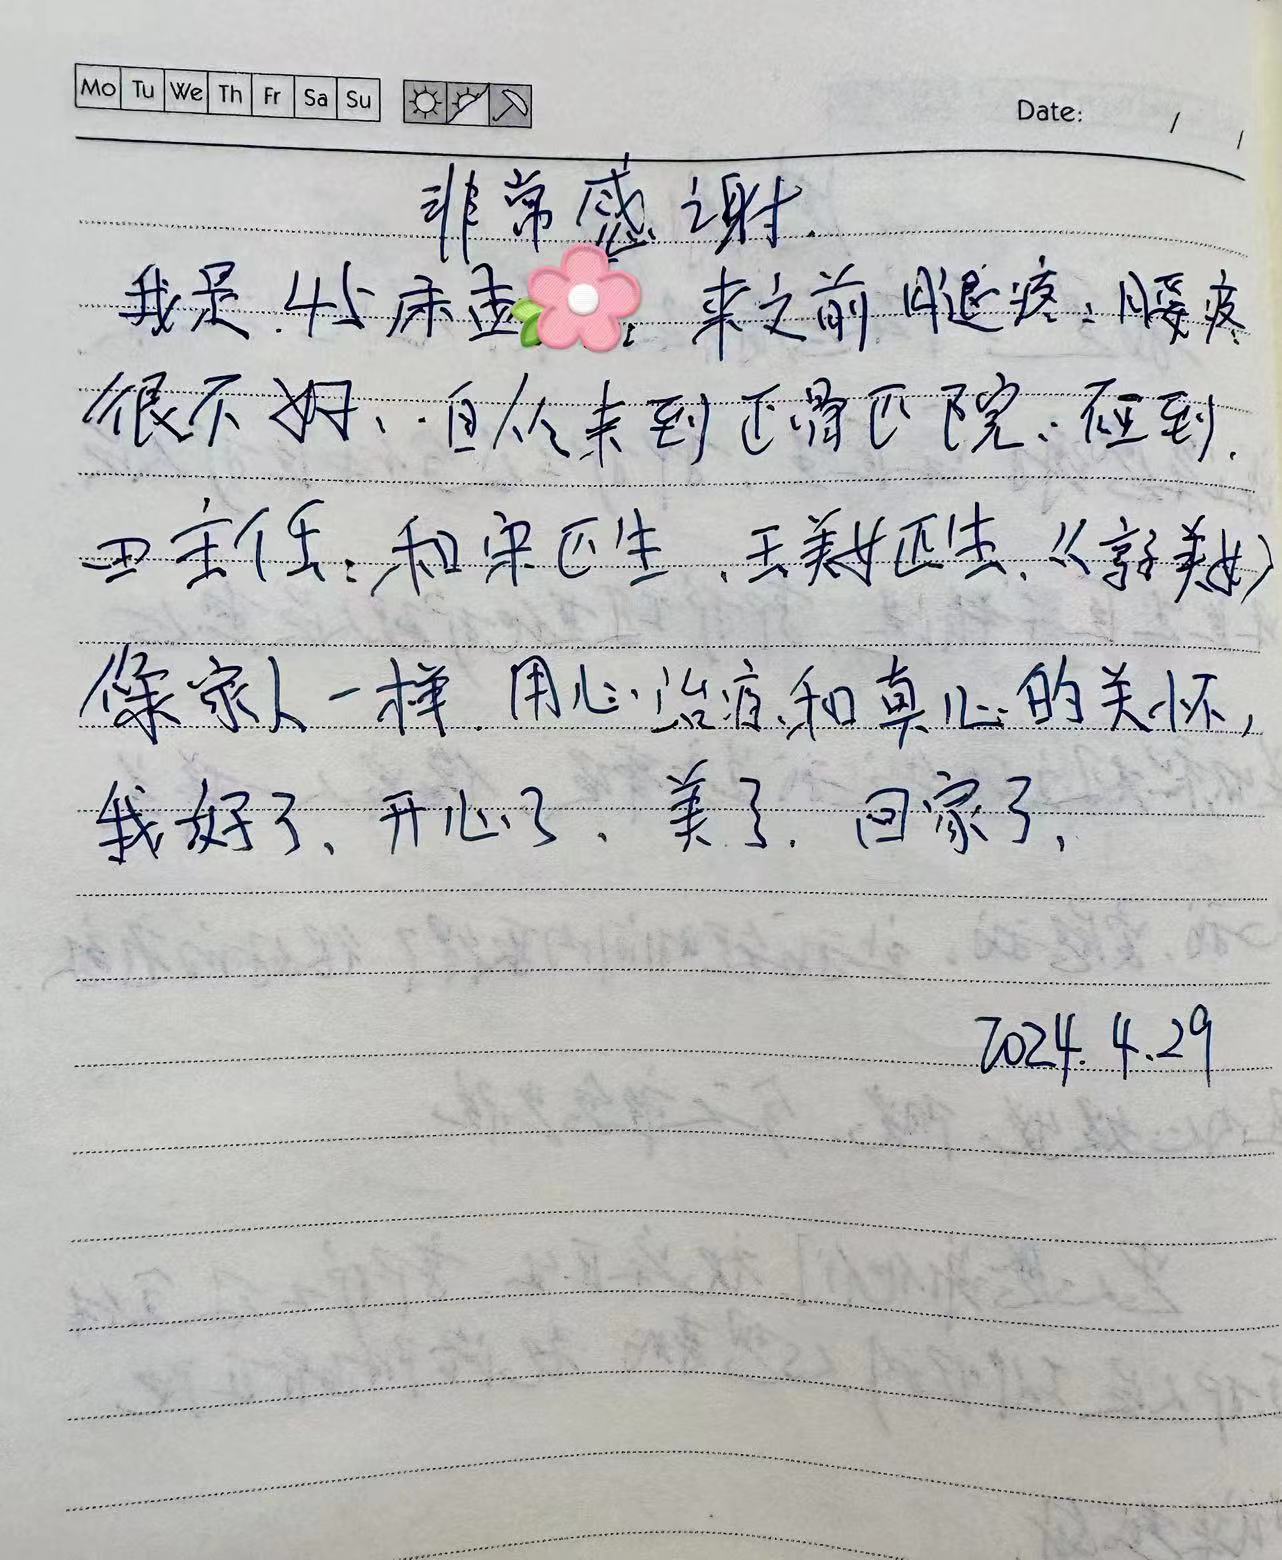 Mo Tu We Th Fr Sa Su
Date: / /
非常感谢.
我是.45床孟 来之前腿疼:腰疼
很不好、自从来到正骨医院、碰到.
田主任:和宋医生、王美女医生、《郭美女》
像家人一样.用心治疗、和真心的关怀,
我好了、开心了、美了.回家了,
2024.4.29